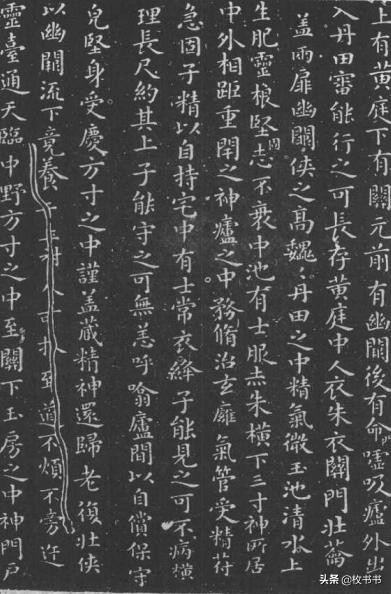 上有黄庭下有關元前有幽闕後有命噓吸廬外出
入丹田審能行之可長存黄庭中人衣朱衣關門壯蘥
盖兩扉幽闕俠之高魏〻丹田之中精氣微玉池清水上
生肥靈根堅志不衰中池有士服赤朱橫下三寸神所居
固
中外相距重閇之神廬之中務脩治玄䧹氣管受精苻
急固子精以自持宅中有士常衣絳子能見之可不病橫
理長尺約其上子能守之可無恙呼噏廬間以自償保守
皃堅身受慶方寸之中謹盖藏精神還歸老復壯俠
以幽闕流下竟養至道不煩不旁迕
靈臺通天臨中野方寸之中至關下玉房之中神門戶
头条 @枚书书